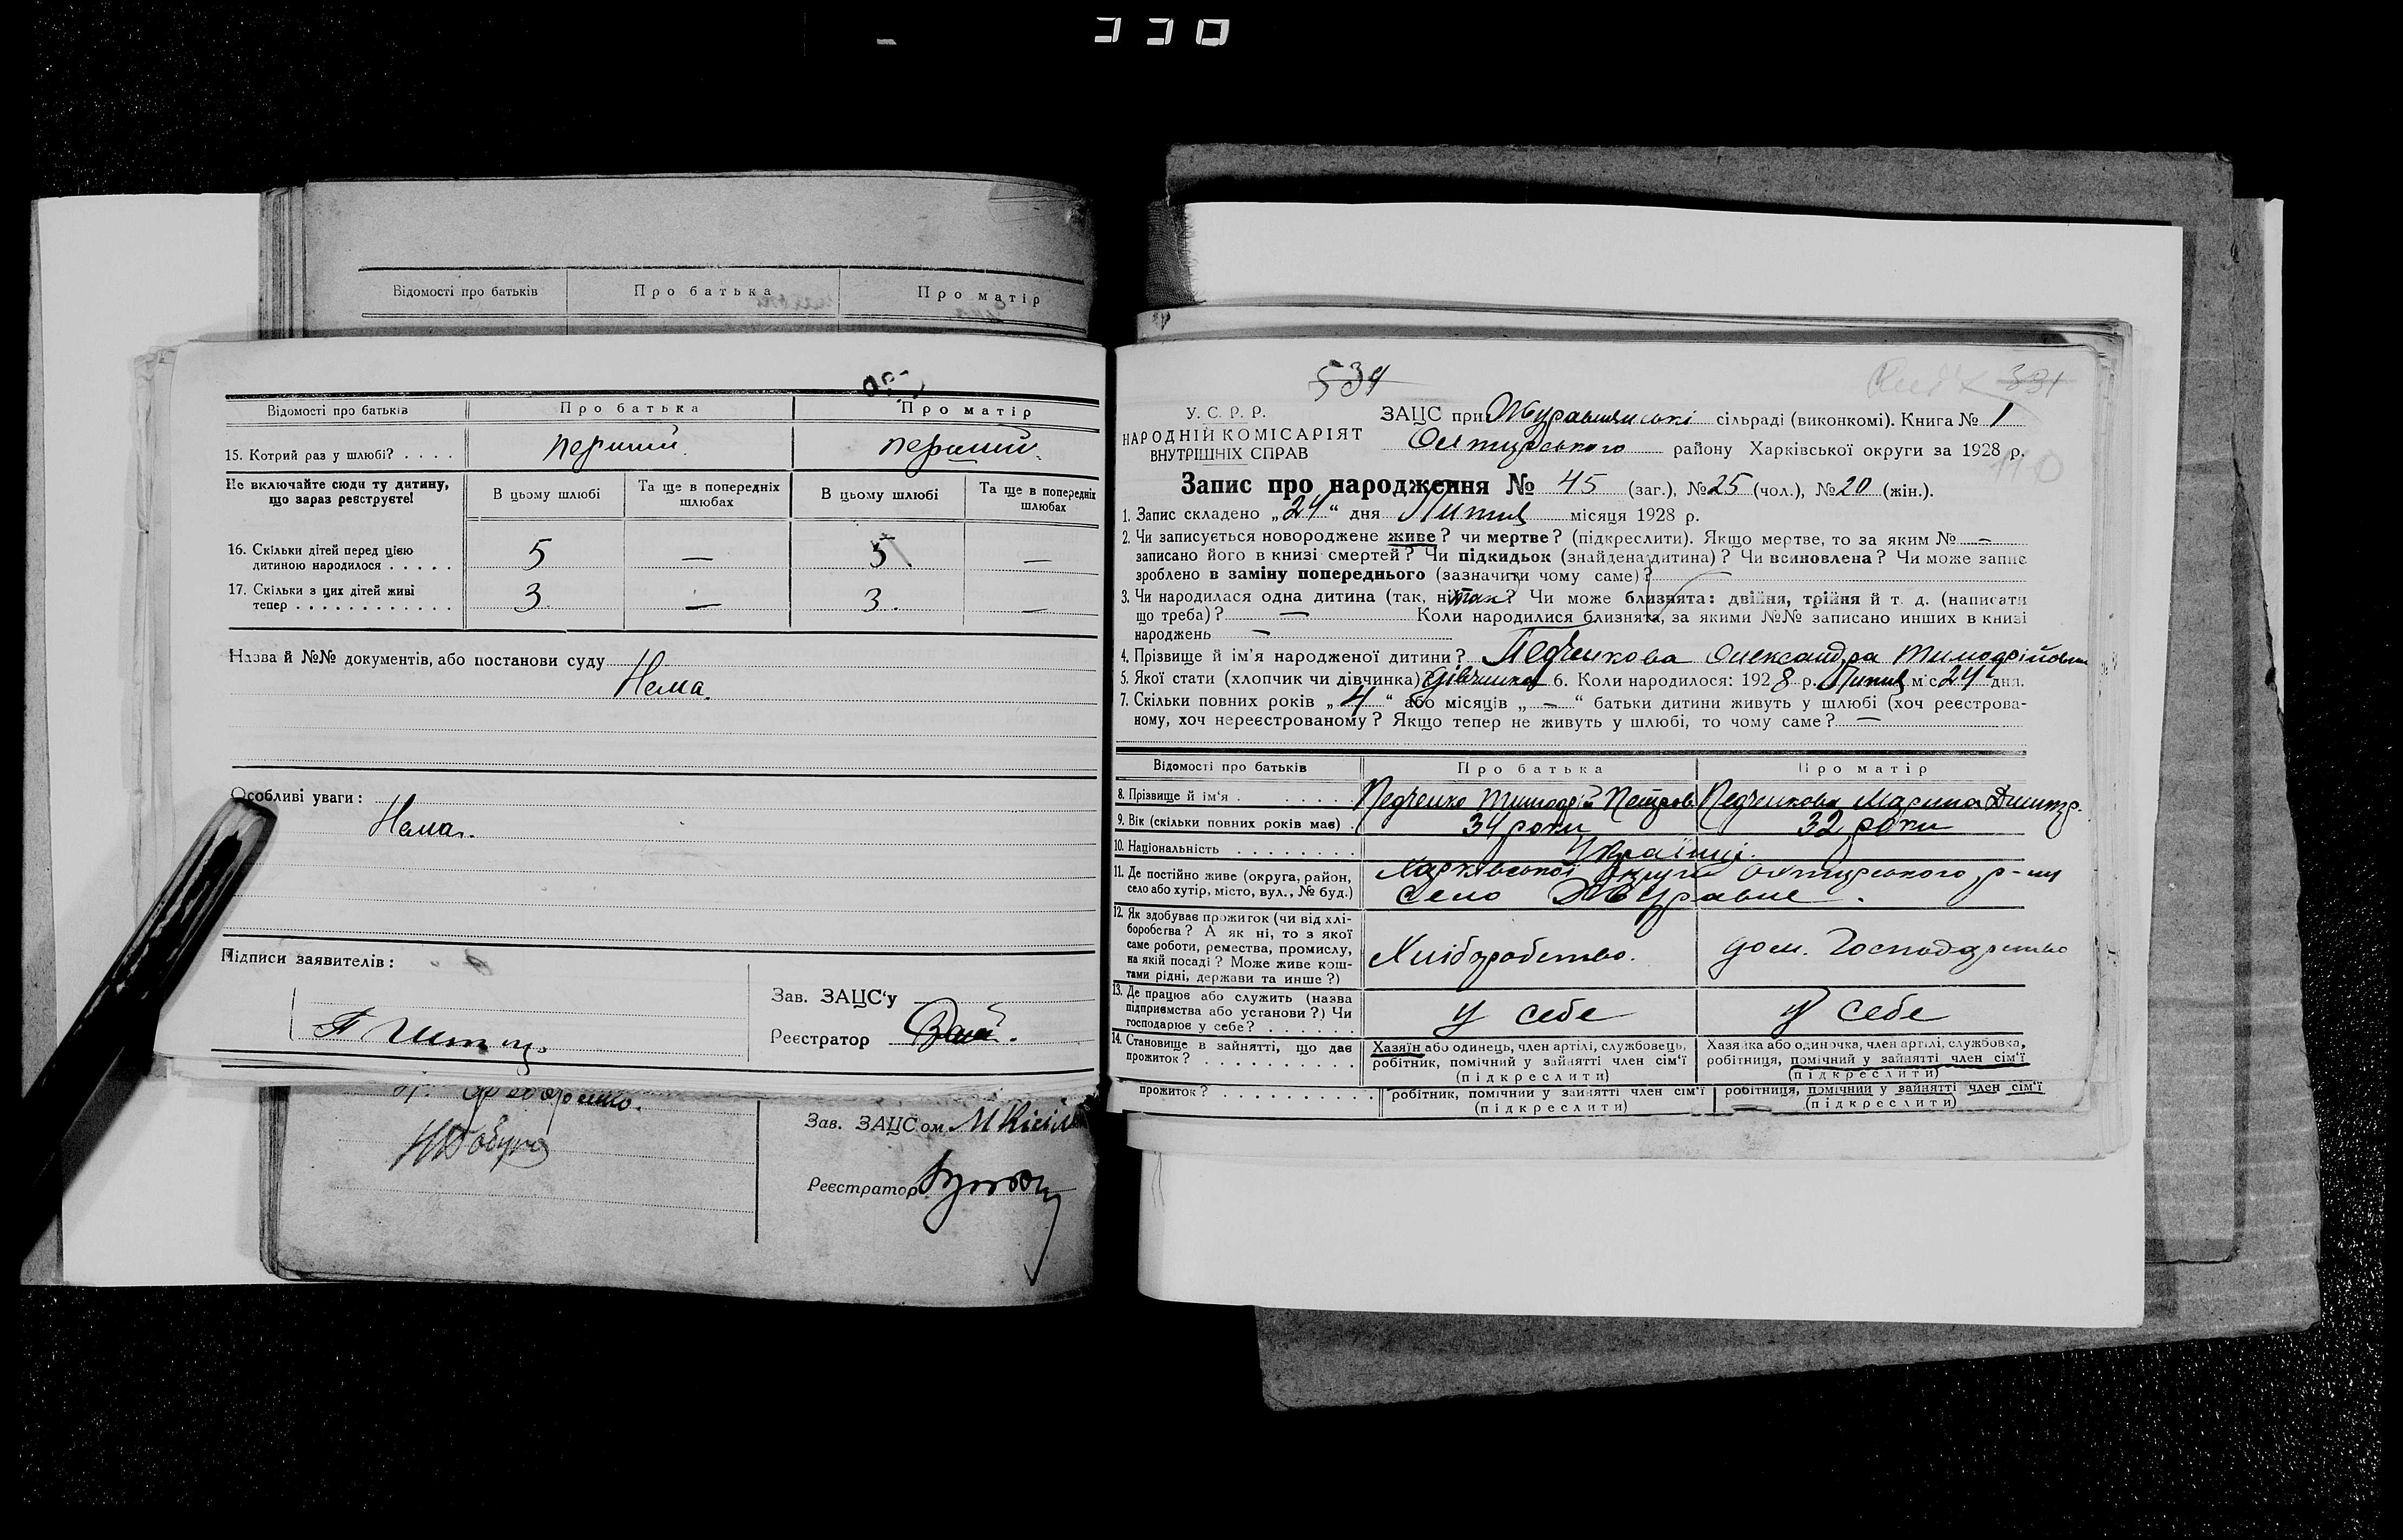 330
Відомості про батьків | Про батька | Про матір
Відомості про батьків | Про батька | Про матір
15. Котрий раз у шлюбі? . . . . | перший | перший
Не включайте сюди ту дитину, що зараз реєструєте! | В цьому шлюбі | Та ще в попередніх шлюбах | В цьому шлюбі | Та ще в попередніх шлюбах
16. Скільки дітей перед цією дитиною народилося . . . . . | 5 | — | 5 | —
17. Скільки з цих дітей живі тепер . . . . . . . . . . . . | 3 | — | 3. | —
Назва й №№ документів, або постанови суду
Нема.
Особливі уваги:
Нема.
Підписи заявителів:
Зав. ЗАЦС'у
Реєстратор
Зав. ЗАЦСом
Реєстратор
534
331
110
У. С. Р. Р.
НАРОДНІЙ КОМІСАРІЯТ
ВНУТРІШНІХ СПРАВ
ЗАЦС при Журавлинські сільраді (виконкомі). Книга № 1
району Харківської округи за 1928 р.
Запис про народження № 45 (заг.), № 25 (чол.), № 20 (жін.).
1. Запис складено „24“ дня Липня місяця 1928 р.
2. Чи записується новороджене живе? чи мертве? (підкреслити). Якщо мертве, то за яким № —
записано його в книзі смертей? Чи підкидьок (знайдена дитина)? Чи всиновлена? Чи може запис
зроблено в заміну попереднього (зазначити чому саме)?
3. Чи народилася одна дитина (так, ні) так? Чи може близнята: двійня, трійня й т. д. (написати
що треба)? — Коли народилися близнята, за якими №№ записано инших в книзі
народжень —
4. Прізвище й ім'я народженої дитини? Педченкова Олександра Тимофіївна
5. Якої стати (хлопчик чи дівчинка)? дівчинка 6. Коли народилося: 1928 р. Липня міс 24 дня.
7. Скільки повних років „4“ або місяців „—“ батьки дитини живуть у шлюбі (хоч реєстрова-
ному, хоч нереєстрованому? Якщо тепер не живуть у шлюбі, то чому саме? —
Відомості про батьків | Про батька | Про матір
8. Прізвище й ім'я . . . . . | Педченко Тимофій Петров | Педченкова Марина Дмитр.
9. Вік (скільки повних років має) . | 34 роки | 32 роки
10. Національність . . . . . . . . | Українці.
11. Де постійно живе (округа, район, | Харківської округи р-ну
село або хутір, місто, вул., № буд.) | село Журавне.
12. Як здобуває прожиток (чи від хлі-
боробства? А як ні, то з якої
саме роботи, ремества, промислу, | Хліборобство. | дом. Господарство
на якій посаді? Може живе кош-
тами рідні, держави та инше?)
13. Де працює або служить (назва
підприємства або установи?) Чи | у себе | у себе
господарює у себе? . . . . . .
14. Становище в зайнятті, що дає | Хазяїн або одинець, член артілі, службовець, | Хазяйка або одиночка, член артілі, службовка,
прожиток? . . . . . . . . . | робітник, помічний у зайнятті член сім'ї | робітниця, помічний у зайнятті член сім'ї
(підкреслити) | (підкреслити)
прожиток? . . . . . . . . . . | робітник, помічний у зайнятті член сім'ї | робітниця, помічний у зайнятті член сім'ї
(підкреслити) | (підкреслити)